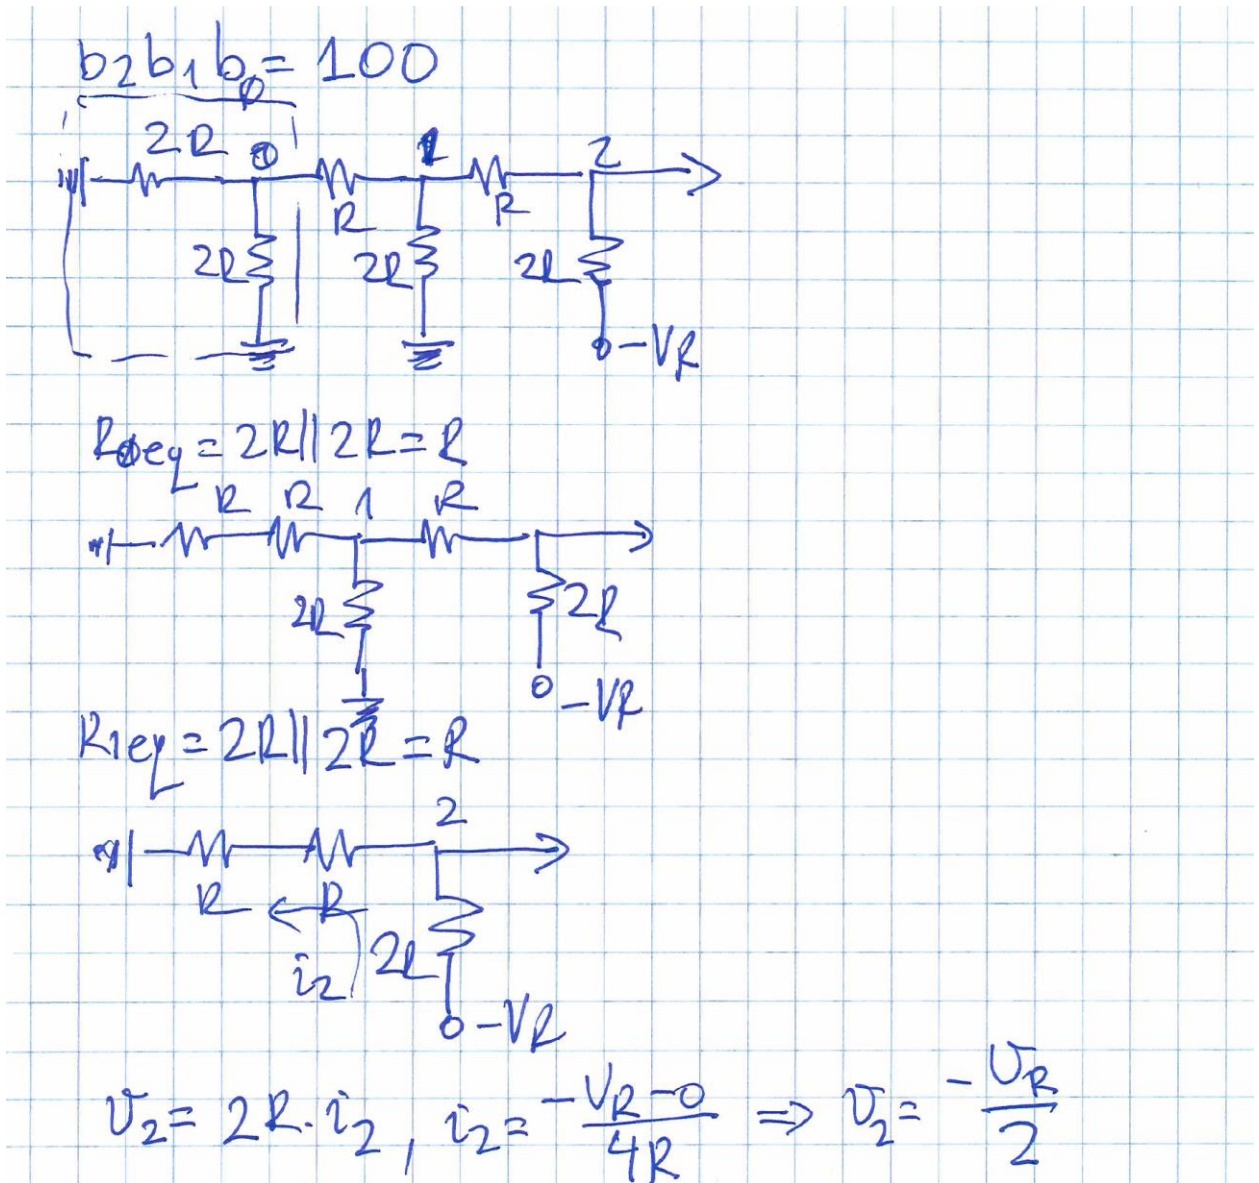 b₂b₁b₀ = 100
2R 0 1 2
R R
2R 2R 2R
-VR
R0eq = 2R || 2R = R
R R 1 R
2R 2R
-VR
R1eq = 2R || 2R = R
2
R R
i₂ 2R
-VR
υ₂ = 2R · i₂, i₂ = (-VR - 0)/4R ⇒ υ₂ = -υR/2